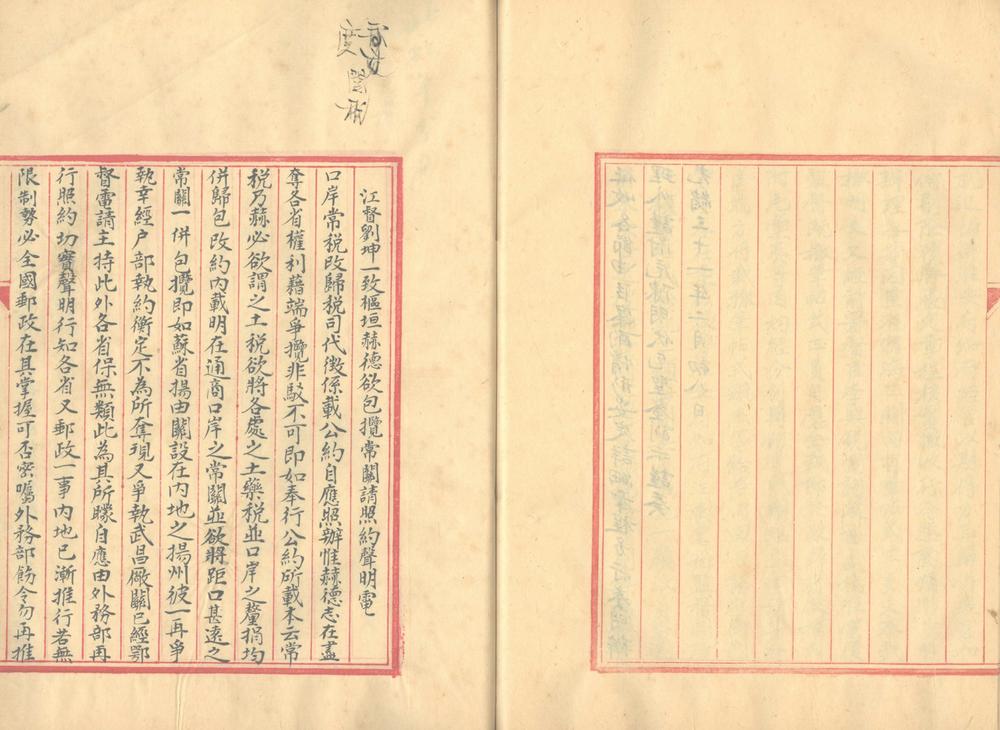 江督劉坤一致樞垣赫德欲包攬常關請照約聲明電
口岸常稅改歸稅司代徵係載公約自應照辦惟赫德志在盡
奪各省權利藉端爭攬非駁不可即如奉行公約所載本云常
稅乃赫必欲謂之土稅欲將各處之土藥稅並口岸之釐捐均
併歸包改約內載明在通商口岸之常關並欲將距口甚遠之
常關一併包攬即如蘇省揚由關設在內地之揚州彼一再爭
執幸經户部執約衡定不為所奪現又爭執武昌廠關已經鄂
督電請主持此外各省保無類此為其所矇自應由外務部再
行照約切實聲明行知各省又郵政一事內地已漸推行若無
限制勢必全國郵政在其掌握可否密囑外務部飭令勿再推